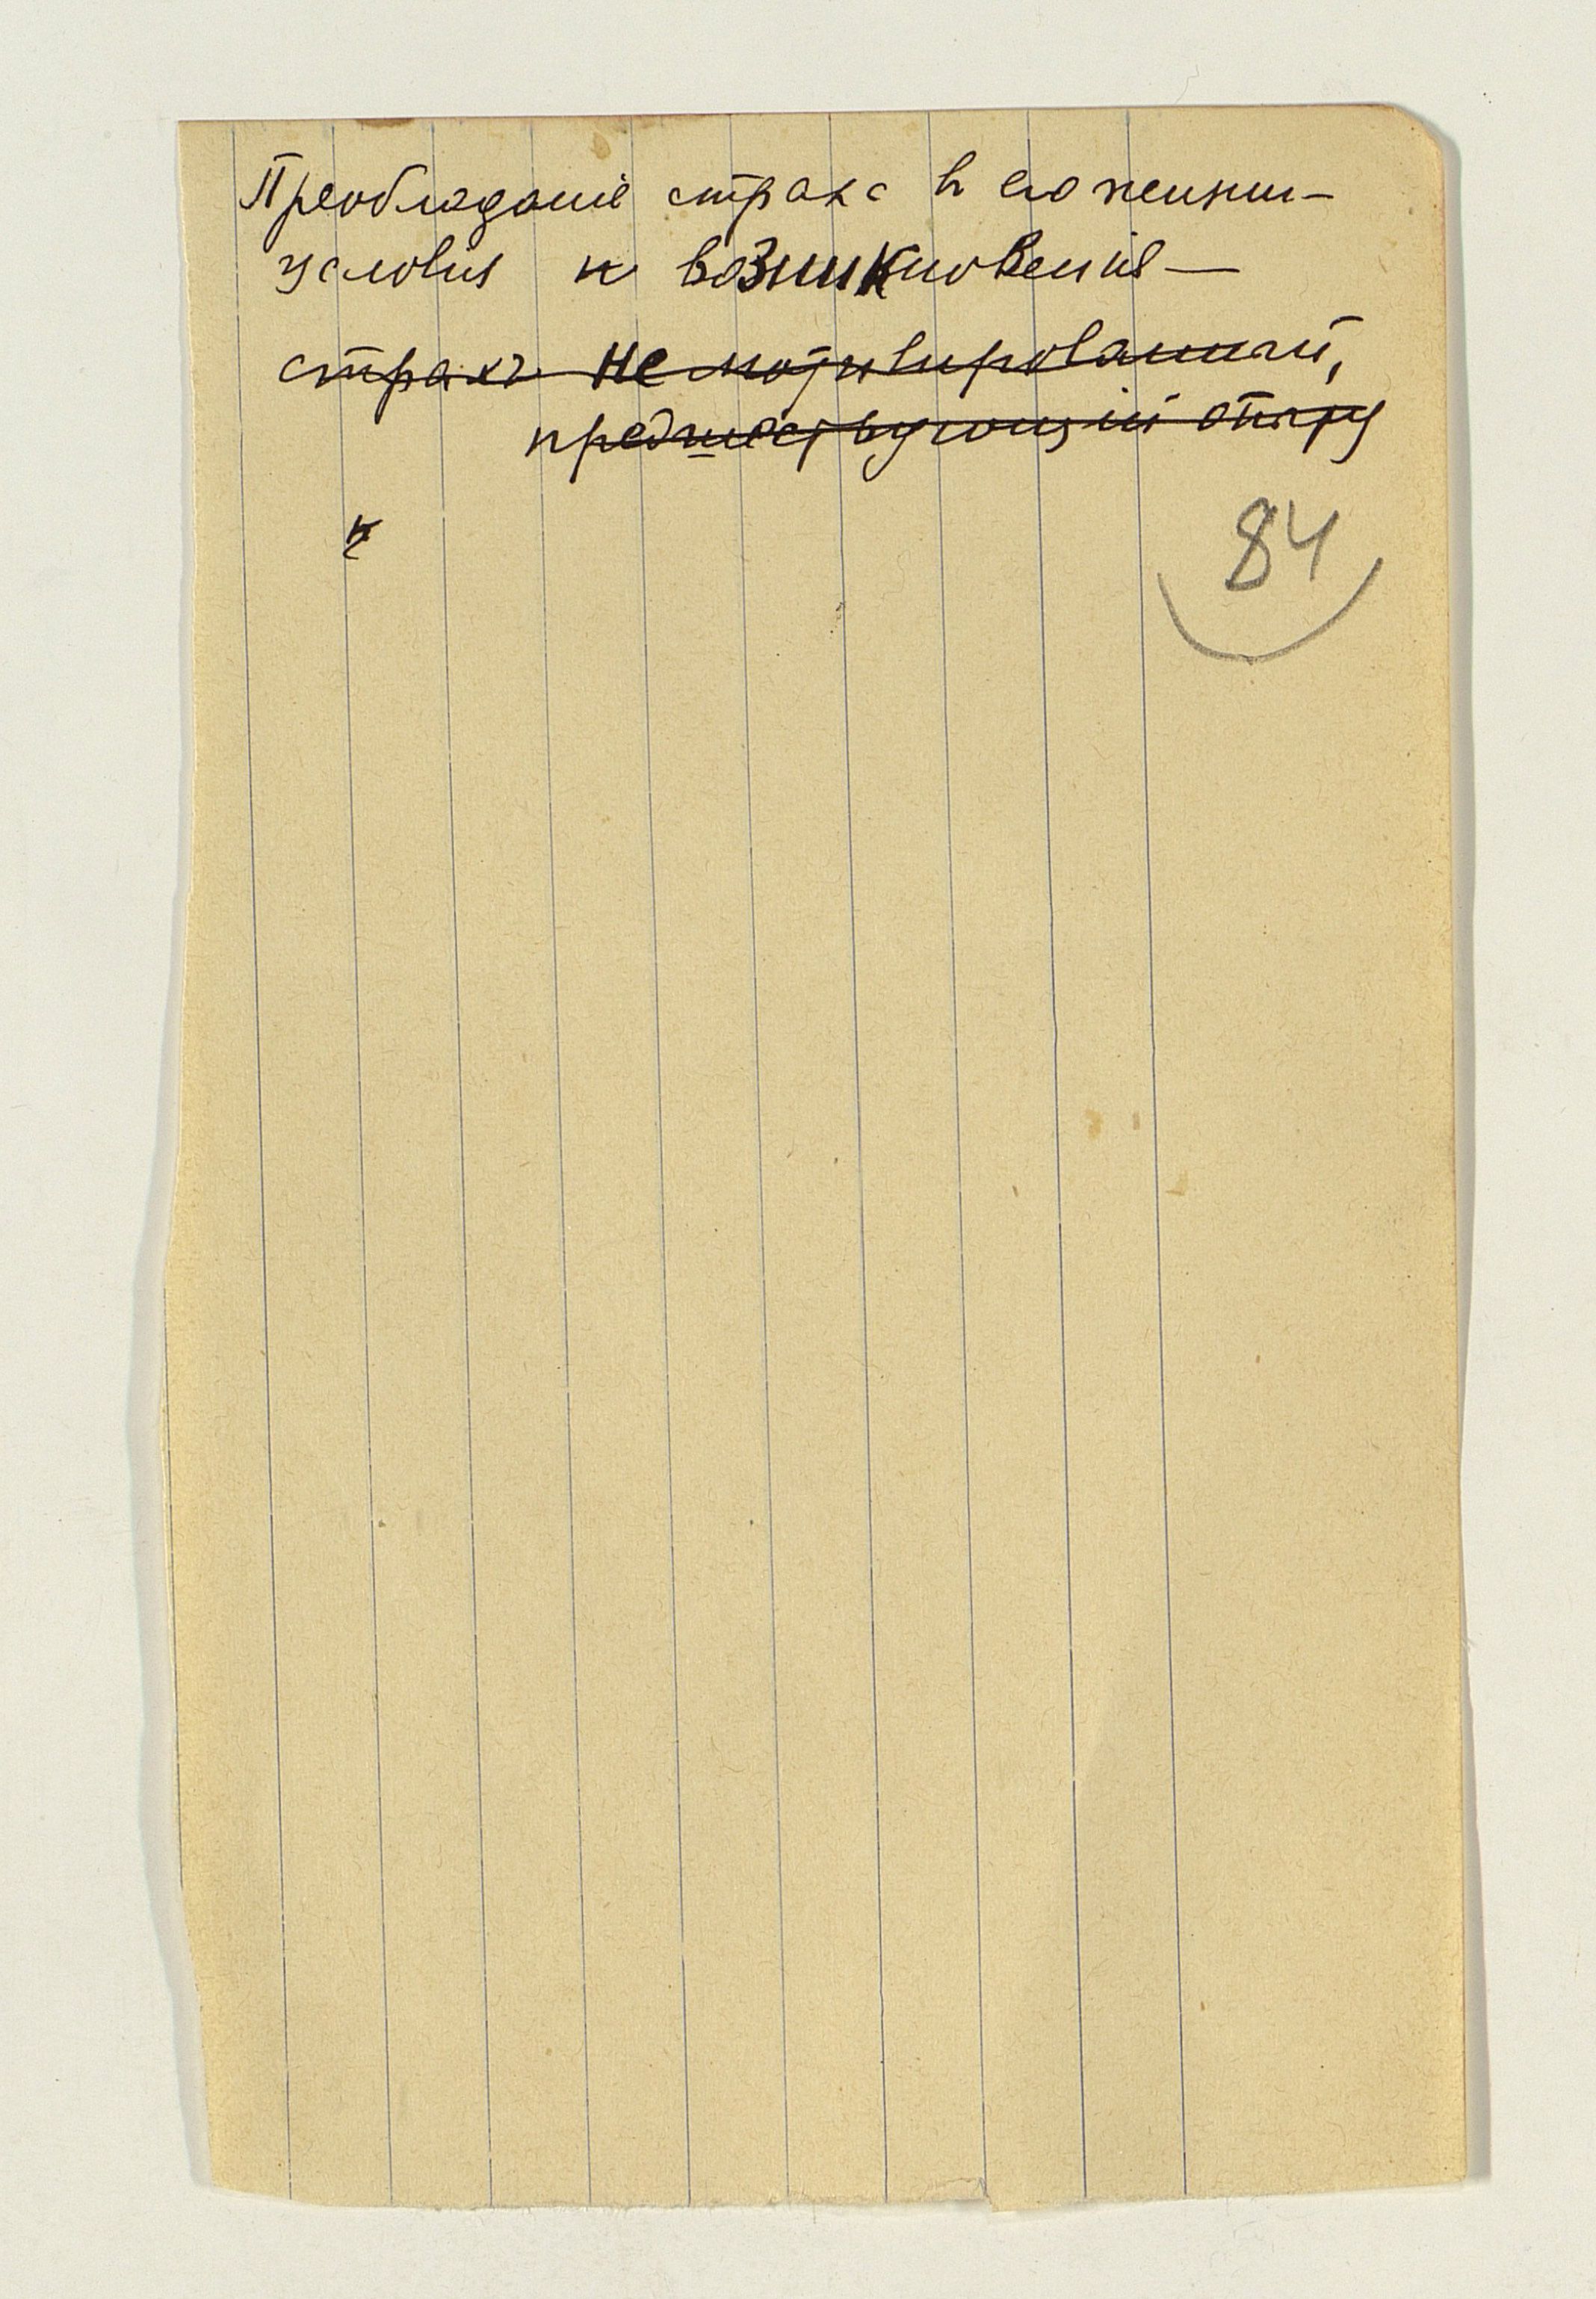 Преобладаніе страха в его жизни —
условія к возникновенія —
страхъ не мотивированный,
предшествующій опыту
к
84